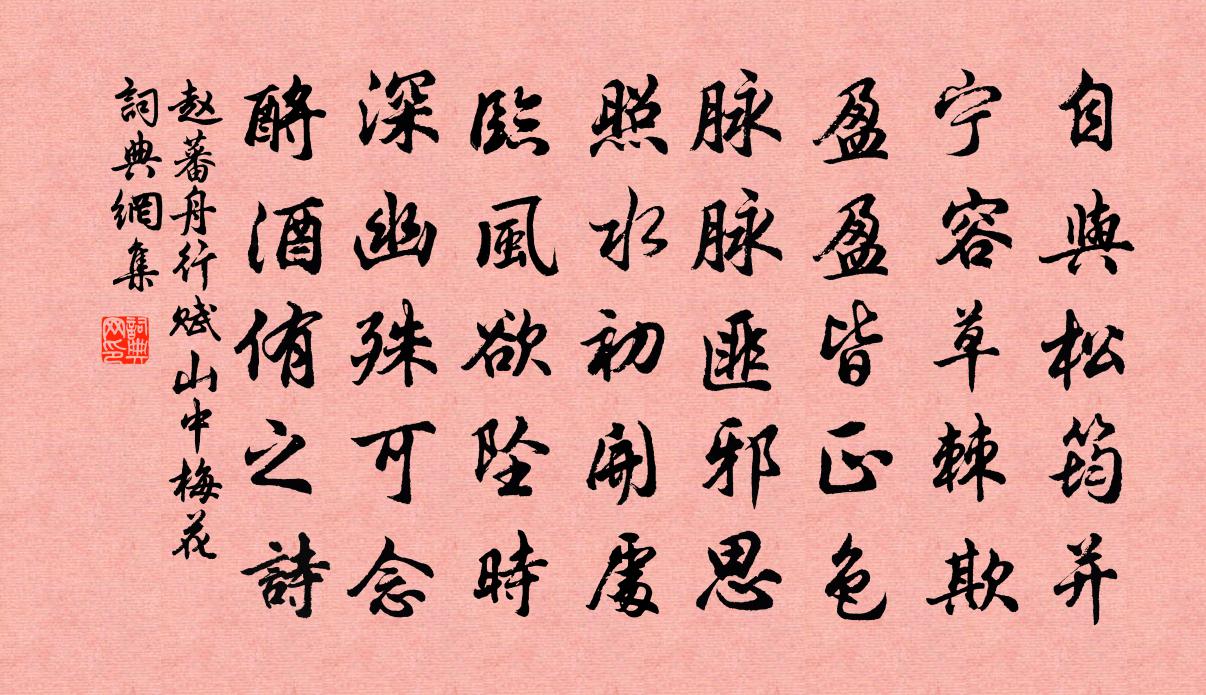 自與松筠并
宁容草棘欺
盈盈皆正色
脉脉匪邪思
照水初開處
臨風欲墜時
深幽殊可念
酹酒侑之詩
赵蕃舟行赋山中梅花
詞典網集
詞典網印